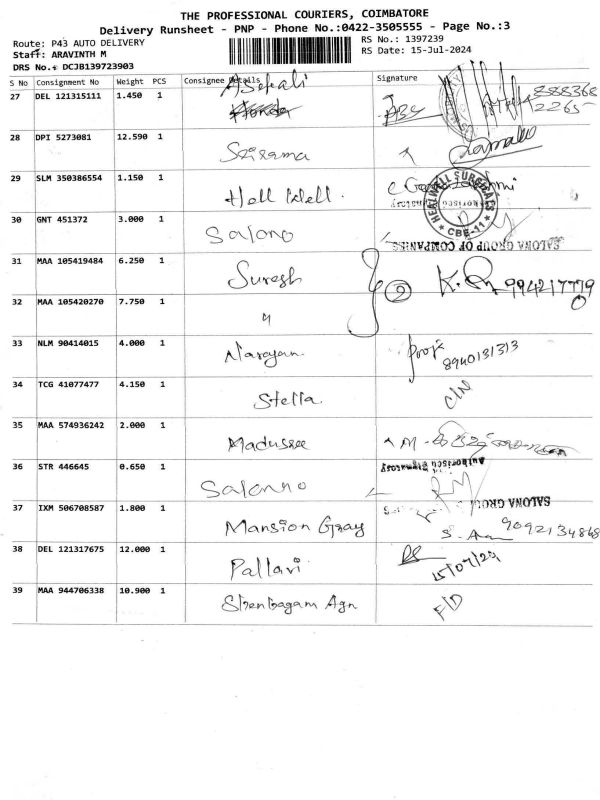 THE PROFESSIONAL COURIERS, COIMBATORE
Delivery Runsheet - PNP - Phone No.:0422-3505555 - Page No.:3
Route: P43 AUTO DELIVERY RS No.: 1397239
Staff: ARAVINTH M RS Date: 15-Jul-2024
DRS No.: DCJB139723903
S No Consignment No Weight PCS Consignee Details Signature
27 DEL 121315111 1.450 1
28 DPI 5273081 12.590 1 Srirama
29 SLM 350386554 1.150 1 Hell Well
HEALWELL SURGICALS
★ CBE-11 ★
30 GNT 451372 3.000 1 Salono
SALONA GROUP OF COMPANIES
31 MAA 105419484 6.250 1 Suresh 2
32 MAA 105420270 7.750 1 "
33 NLM 90414015 4.000 1 Narayan Pooja
8940131313
34 TCG 41077477 4.150 1 Stella C/N
35 MAA 574936242 2.000 1 Madussee
Authorised Signatory
36 STR 446645 0.650 1 Salonno
SALONA GROUP
37 IXM 506708587 1.800 1 Mansion Gray 9092134868
38 DEL 121317675 12.000 1 Pallavi 15/07/24
39 MAA 944706338 10.900 1 Shenbagam Agn F/D